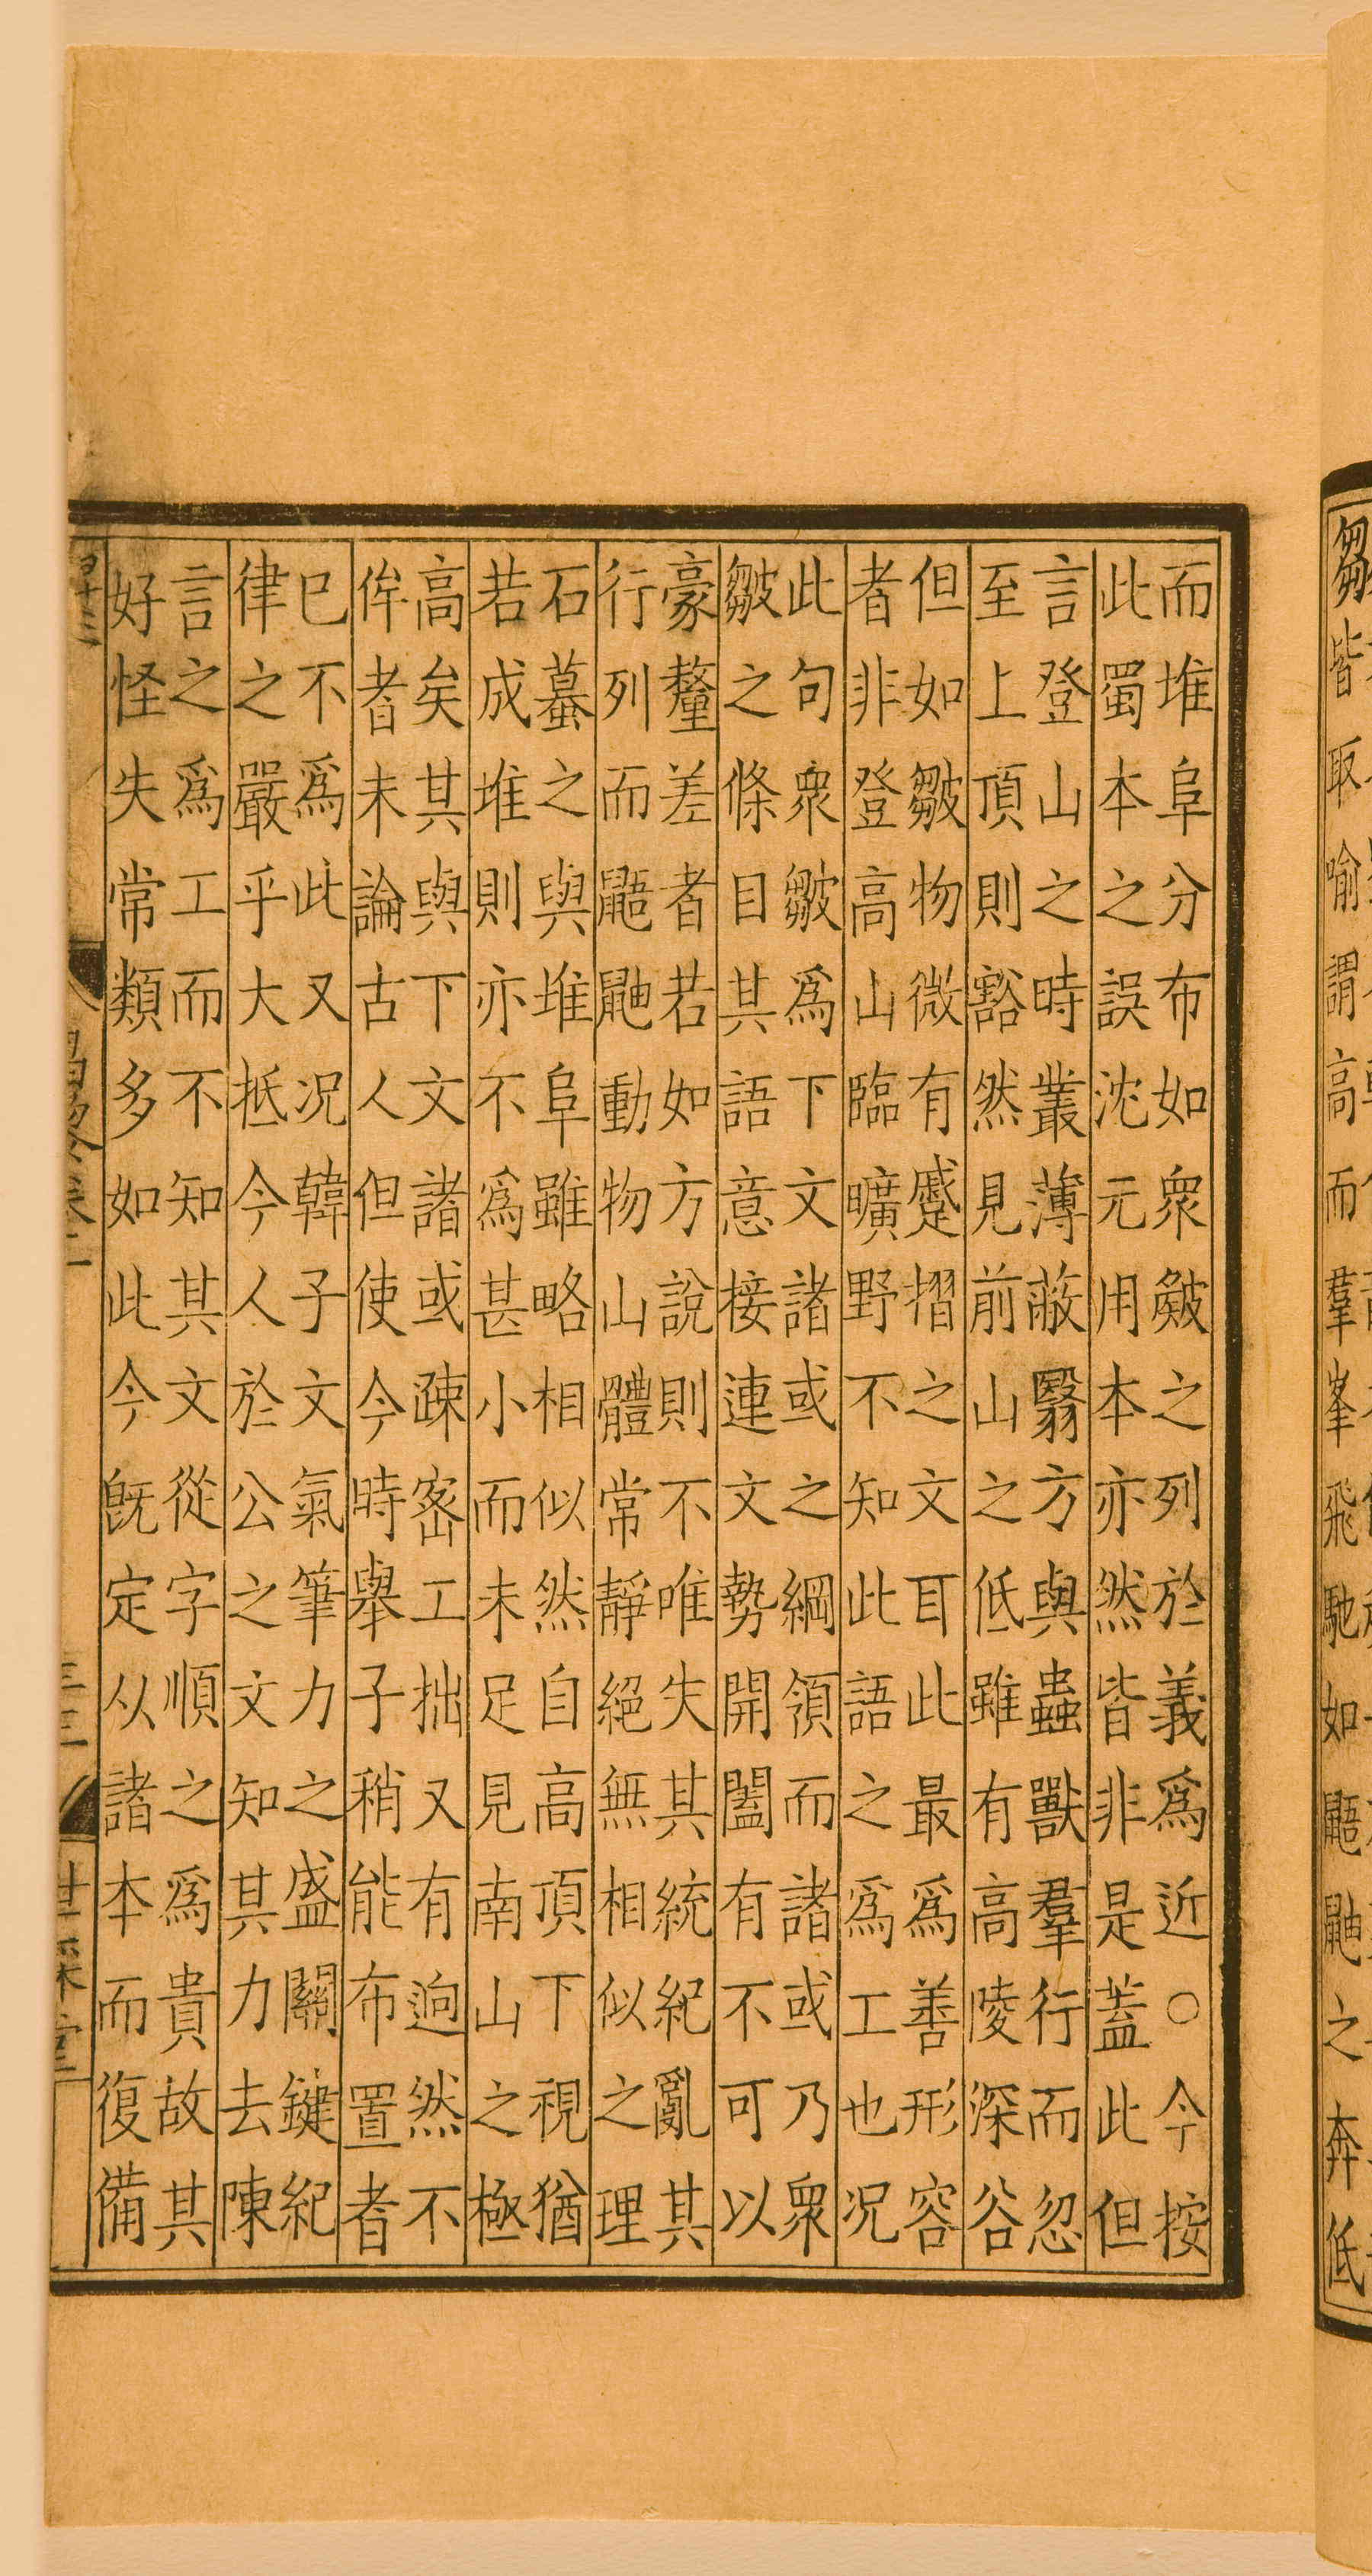 而堆阜分布如衆皴之列於義爲近○今按
此蜀本之誤沈元用本亦然皆非是蓋此但
言登山之時叢薄蔽翳方與蟲獸羣行而忽
至上頂則豁然見前山之低雖有高陵深谷
但如皺物微有蹙摺之文耳此最爲善形容
者非登高山臨曠野不知此語之爲工也况
此句衆皺爲下文諸或之綱領而諸或乃衆
皺之條目其語意接連文勢開闔有不可以
豪釐差者若如方説則不唯失其統紀亂其
行列而鼯鼬動物山體常靜絕無相似之理
石蕞之與堆阜雖略相似然自高頂下視猶
若成堆則亦不爲甚小而未足見南山之極
高矣其與下文諸或疎宻工拙又有逈然不
侔者未論古人但使今時舉子稍能布置者
已不爲此又况韓子文氣筆力之盛關鍵紀
律之嚴乎大抵今人於公之文知其力去陳
言之爲工而不知其文從字順之爲貴故其
好怪失常類多如此今旣定从諸本而復備